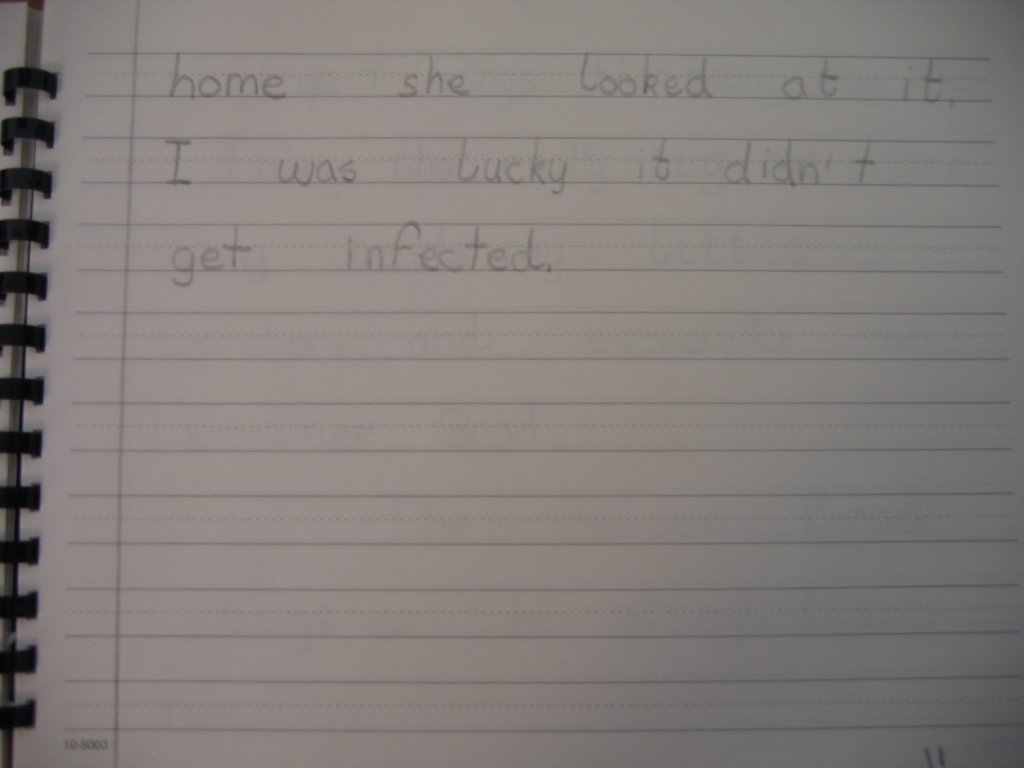 home she looked at it.
I was lucky it didn't
get infected.
10-8003
11